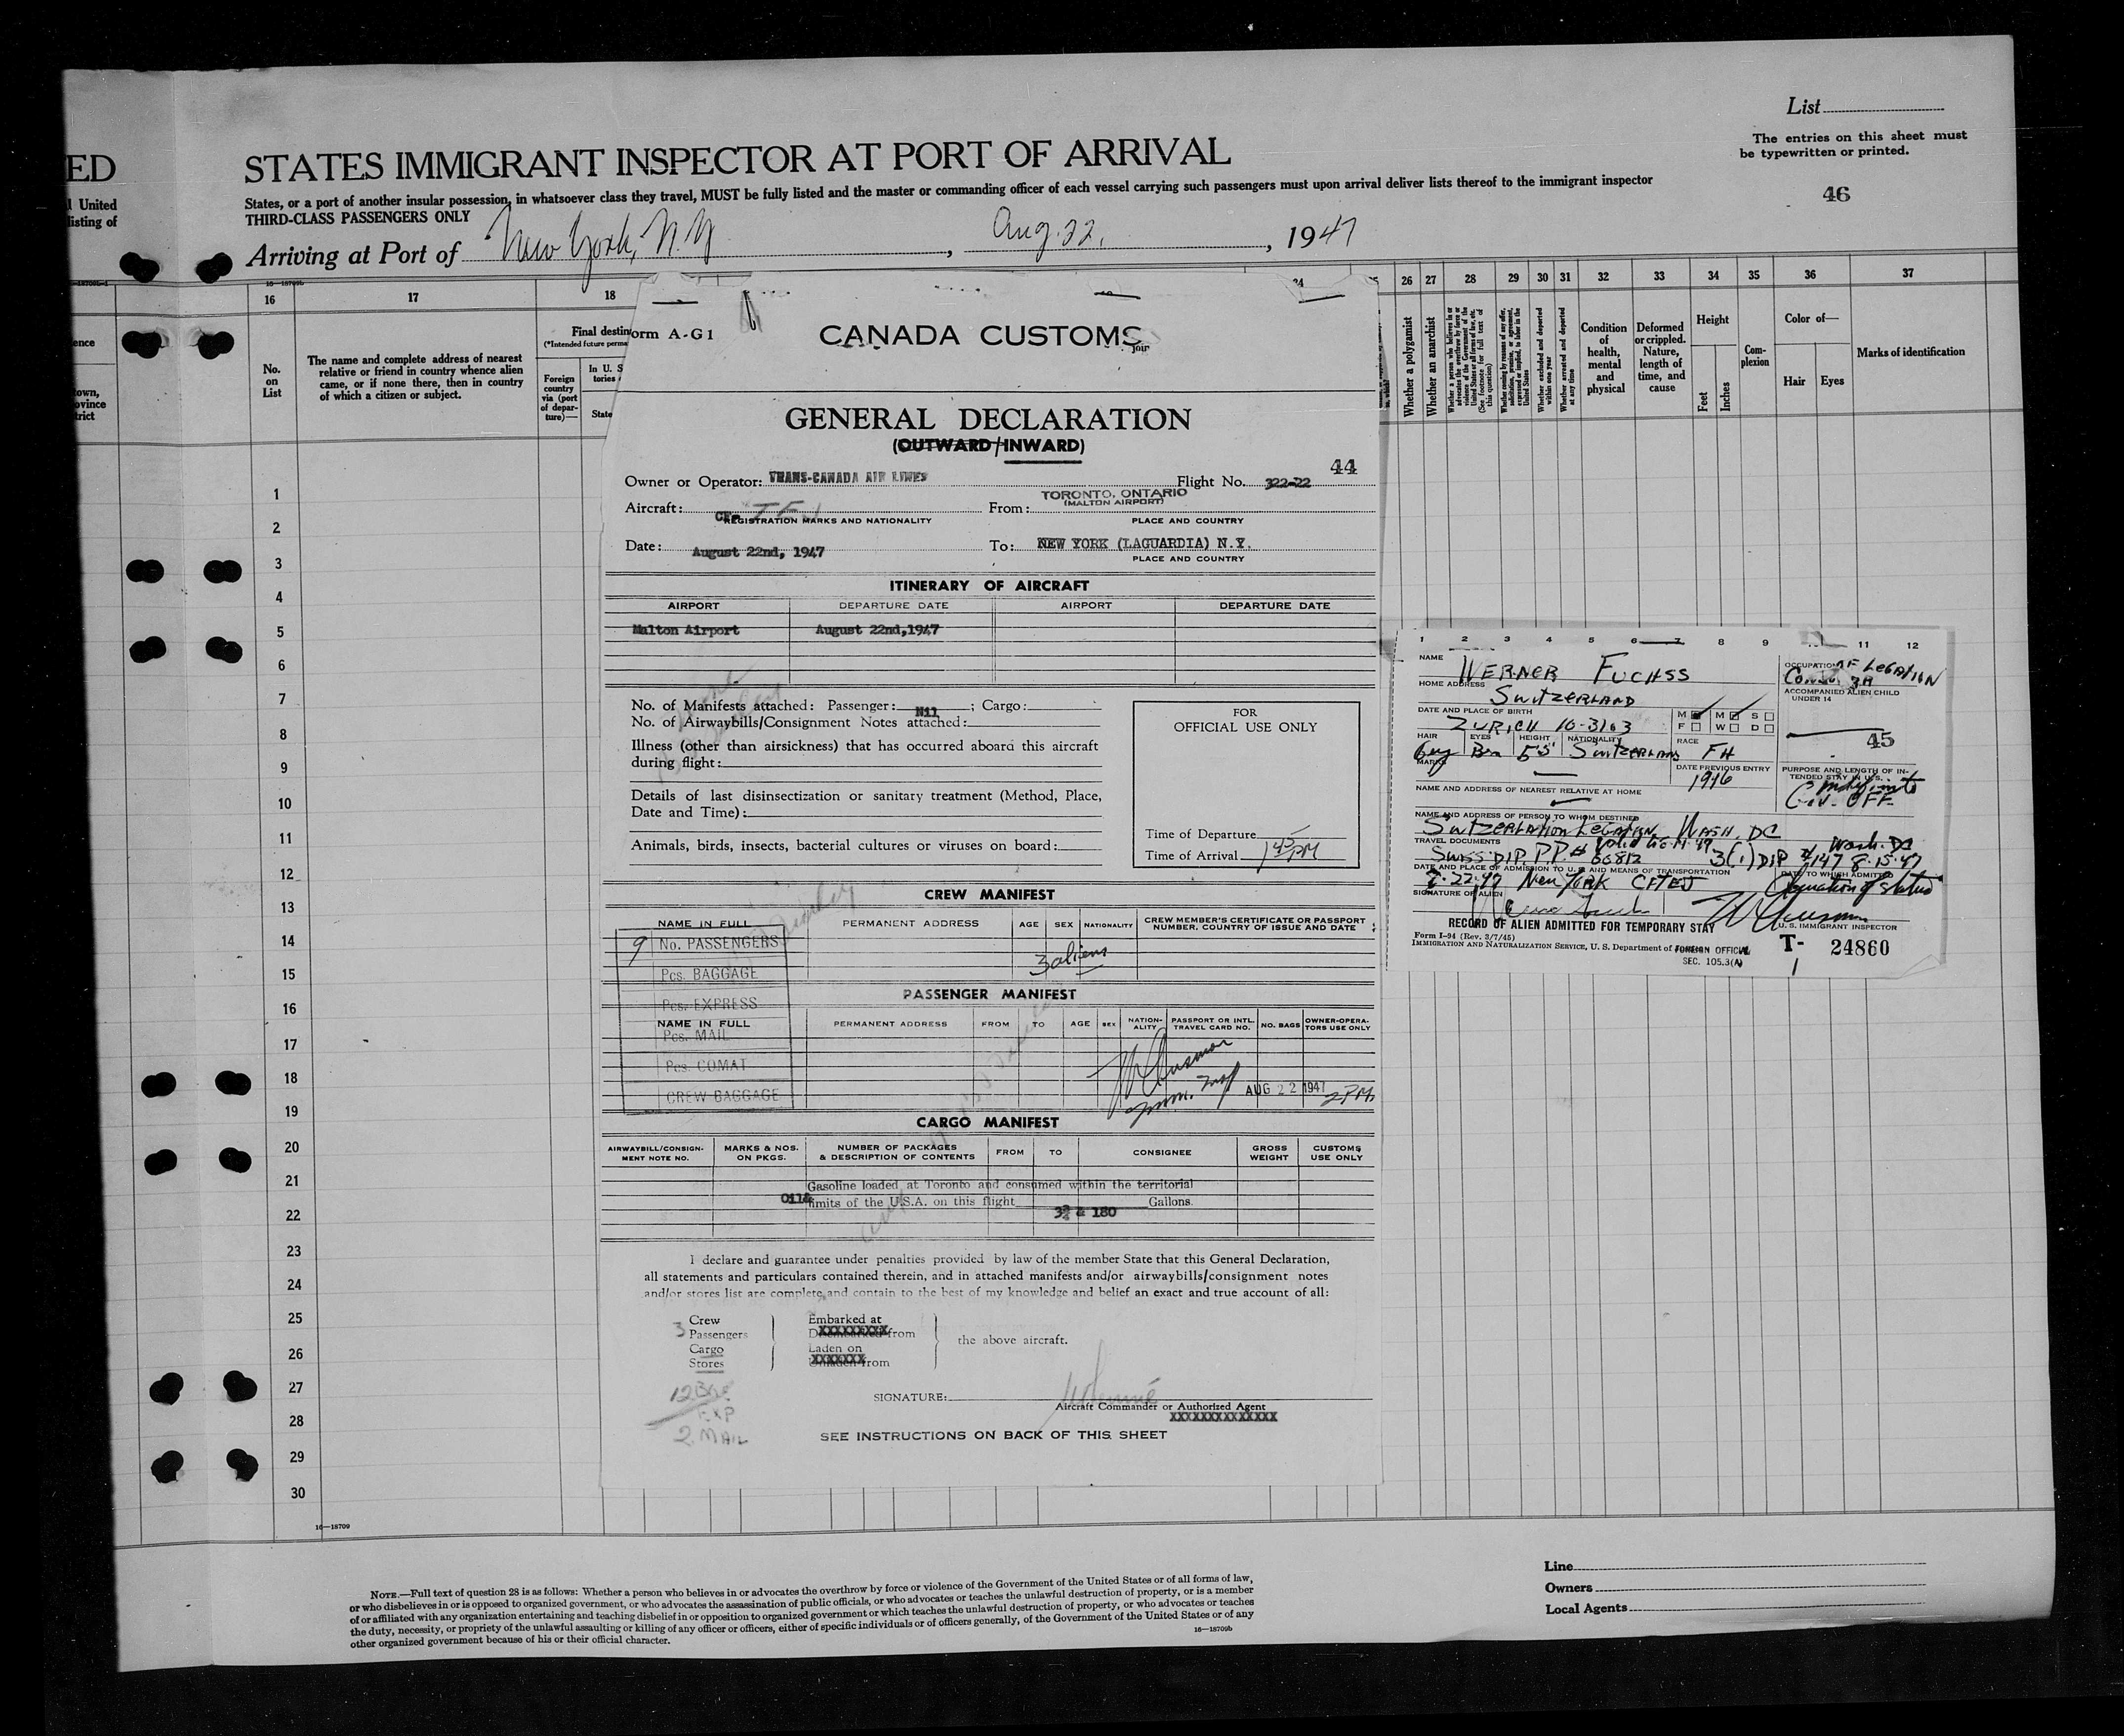 List
The entries on this sheet must
be typewritten or printed.
46
ED
STATES IMMIGRANT INSPECTOR AT PORT OF ARRIVAL
l United
listing of
States, or a port of another insular possession, in whatsoever class they travel, MUST be fully listed and the master or commanding officer of each vessel carrying such passengers must upon arrival deliver lists thereof to the immigrant inspector
THIRD-CLASS PASSENGERS ONLY
Arriving at Port of New York, N.Y , Aug. 22, , 1947
16—18709b
16 17 18 24 26 27 28 29 30 31 32 33 34 35 36 37
ence
own,
ovince
trict
No.
on
List
The name and complete address of nearest
relative or friend in country whence alien
came, or if none there, then in country
of which a citizen or subject.
Final destin
(*Intended future perma
Foreign
country
via (port
of depar-
ture)—
In U. S
tories
State
Whether a polygamist
Whether an anarchist
Whether excluded and deported
within one year
Whether arrested and deported
at any time
Condition
of
health,
mental
and
physical
Deformed
or crippled.
Nature,
length of
time, and
cause
Height
Feet
Inches
Com-
plexion
Color of—
Hair
Eyes
Marks of identification
1
2
3
4
5
6
7
8
9
10
11
12
13
14
15
16
17
18
19
20
21
22
23
24
25
26
27
28
29
30
16—18709
orm A-G1
CANADA CUSTOMS
GENERAL DECLARATION
(OUTWARD/INWARD)
44
Owner or Operator: TRANS-CANADA AIR LINES Flight No. 322-22
Aircraft: CF- TFJ From: TORONTO, ONTARIO
(MALTON AIRPORT)
REGISTRATION MARKS AND NATIONALITY PLACE AND COUNTRY
Date: August 22nd, 1947 To: NEW YORK (LAGUARDIA) N.Y.
PLACE AND COUNTRY
ITINERARY OF AIRCRAFT
AIRPORT DEPARTURE DATE AIRPORT DEPARTURE DATE
Malton Airport August 22nd,1947
No. of Manifests attached: Passenger: Nil ; Cargo:
No. of Airwaybills/Consignment Notes attached:
Illness (other than airsickness) that has occurred aboard this aircraft
during flight:
Details of last disinsectization or sanitary treatment (Method, Place,
Date and Time):
Animals, birds, insects, bacterial cultures or viruses on board:
FOR
OFFICIAL USE ONLY
Time of Departure
Time of Arrival 1 45 PM
CREW MANIFEST
NAME IN FULL PERMANENT ADDRESS AGE SEX NATIONALITY CREW MEMBER'S CERTIFICATE OR PASSPORT
NUMBER. COUNTRY OF ISSUE AND DATE
9 No. PASSENGERS
3 aliens
Pcs. BAGGAGE
PASSENGER MANIFEST
Pcs. EXPRESS
NAME IN FULL PERMANENT ADDRESS FROM TO AGE SEX NATION-
ALITY PASSPORT OR INTL.
TRAVEL CARD NO. NO. BAGS OWNER-OPERA-
TORS USE ONLY
Pcs. MAIL
Pcs. COMAT
CREW BAGGAGE
Imm. Insp AUG 22 1947 2PM
CARGO MANIFEST
AIRWAYBILL/CONSIGN-
MENT NOTE NO. MARKS & NOS.
ON PKGS. NUMBER OF PACKAGES
& DESCRIPTION OF CONTENTS FROM TO CONSIGNEE GROSS
WEIGHT CUSTOMS
USE ONLY
Gasoline loaded at Toronto and consumed within the territorial
Oil& limits of the U.S.A. on this flight 3¾ & 180 Gallons.
I declare and guarantee under penalties provided by law of the member State that this General Declaration,
all statements and particulars contained therein, and in attached manifests and/or airwaybills/consignment notes
and/or stores list are complete and contain to the best of my knowledge and belief an exact and true account of all:
Crew
3 Passengers
Cargo
Stores
Embarked at
Disembarked from
Laden on
Unladen from
the above aircraft.
12 BAG
EXP
2 MAIL
SIGNATURE:
Aircraft Commander or Authorized Agent
XXXXXXXXXXXXXX
SEE INSTRUCTIONS ON BACK OF THIS SHEET
1 2 3 4 5 6 7 8 9 11 12
NAME WERNER FUCHSS
OCCUPATION OF LEGATION
HOME ADDRESS SWITZERLAND
ACCOMPANIED ALIEN CHILD
UNDER 14
DATE AND PLACE OF BIRTH ZURICH 10-3103
M M S
F W D
45
HAIR EYES HEIGHT NATIONALITY RACE
Gry Brn 5'5" Switzerland FH
MARKS
DATE PREVIOUS ENTRY
1916
PURPOSE AND LENGTH OF IN-
TENDED STAY IN U.S.
Indefinite
Gov. OFF
NAME AND ADDRESS OF NEAREST RELATIVE AT HOME
NAME AND ADDRESS OF PERSON TO WHOM DESTINED
Switzerland Legation, WASH, DC
TRAVEL DOCUMENTS
SWISS DIP. P.P.# 66812 3(1) DIP # 7147 8-15-47 Wash. DC
DATE AND PLACE OF ADMISSION TO U.S. AND MEANS OF TRANSPORTATION
DATE TO WHICH ADMITTED
8-22-47 New York CFTFJ Duration of status
SIGNATURE OF ALIEN
U. S. IMMIGRANT INSPECTOR
RECORD OF ALIEN ADMITTED FOR TEMPORARY STAY
Form I-94 (Rev. 3/7/45)
IMMIGRATION AND NATURALIZATION SERVICE, U. S. Department of
FOREIGN OFFICIAL
SEC. 105.3(A)
T- 24860
1
NOTE.—Full text of question 28 is as follows: Whether a person who believes in or advocates the overthrow by force or violence of the Government of the United States or of all forms of law,
or who disbelieves in or is opposed to organized government, or who advocates the assassination of public officials, or who advocates or teaches the unlawful destruction of property, or is a member
of or affiliated with any organization entertaining and teaching disbelief in or opposition to organized government or which teaches the unlawful destruction of property, or who advocates or teaches
the duty, necessity, or propriety of the unlawful assaulting or killing of any officer or officers, either of specific individuals or of officers generally, of the Government of the United States or of any
other organized government because of his or their official character.
16—18709b
Line
Owners
Local Agents